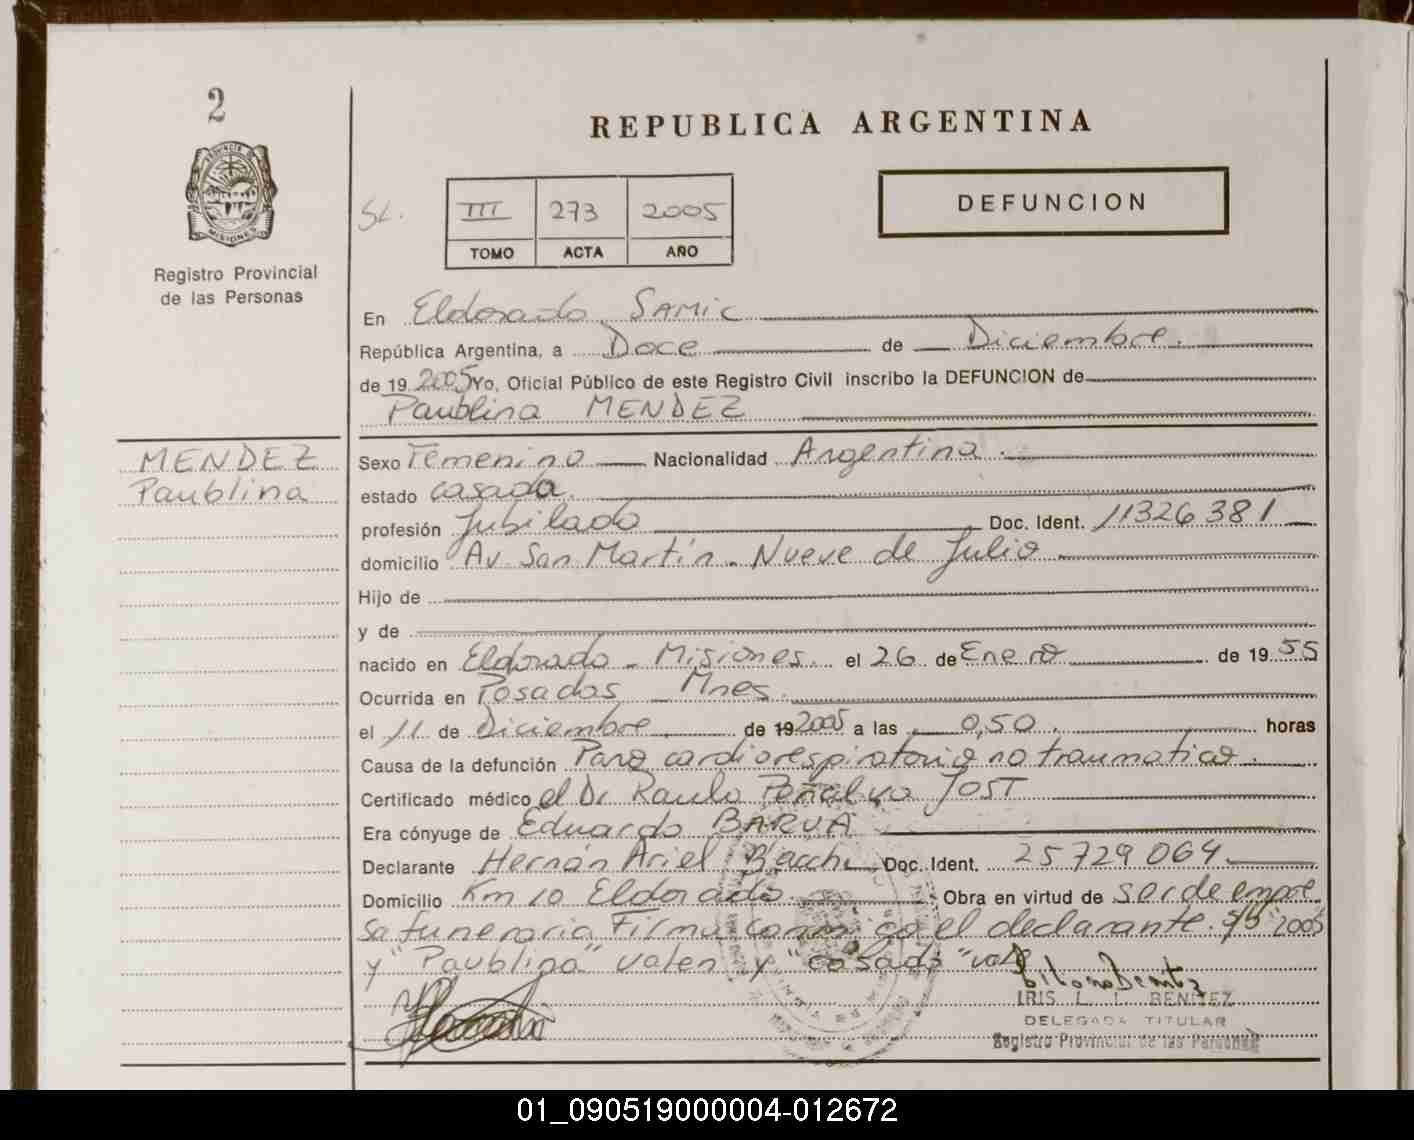 2
REPUBLICA ARGENTINA
PROVINCIA DE MISIONES
Registro Provincial
de las Personas
SL.
III 273 2005
TOMO ACTA AÑO
DEFUNCION
En Eldorado SAMIC
República Argentina, a Doce de Diciembre.
de 19 2005 Yo, Oficial Público de este Registro Civil inscribo la DEFUNCION de
Paublina MENDEZ
MENDEZ
Paublina
Sexo Femenino Nacionalidad Argentina.
estado casada.
profesión Jubilado Doc. Ident. 11326381
domicilio Av. San Martín - Nueve de Julio
Hijo de
y de
nacido en Eldorado - Misiones. el 26 de Enero de 19 55
Ocurrida en Posadas Mnes.
el 11 de Diciembre de 19 2005 a las 0,50 horas
Causa de la defunción Paro cardiorespiratorio no traumatico.
Certificado médico el Dr Raulo Peñalva JOST
Era cónyuge de Eduardo BARUA
Declarante Hernán Ariel Bacchi Doc. Ident. 25729064
Domicilio Km 10 Eldorado Obra en virtud de ser de empre
sa funeraria Firma conmigo el declarante. S/b "2005
y "Paublina" valen y "casada" vale
IRIS L. I. BENITEZ
DELEGADA TITULAR
Registro Provincial de las Personas
01_090519000004-012672